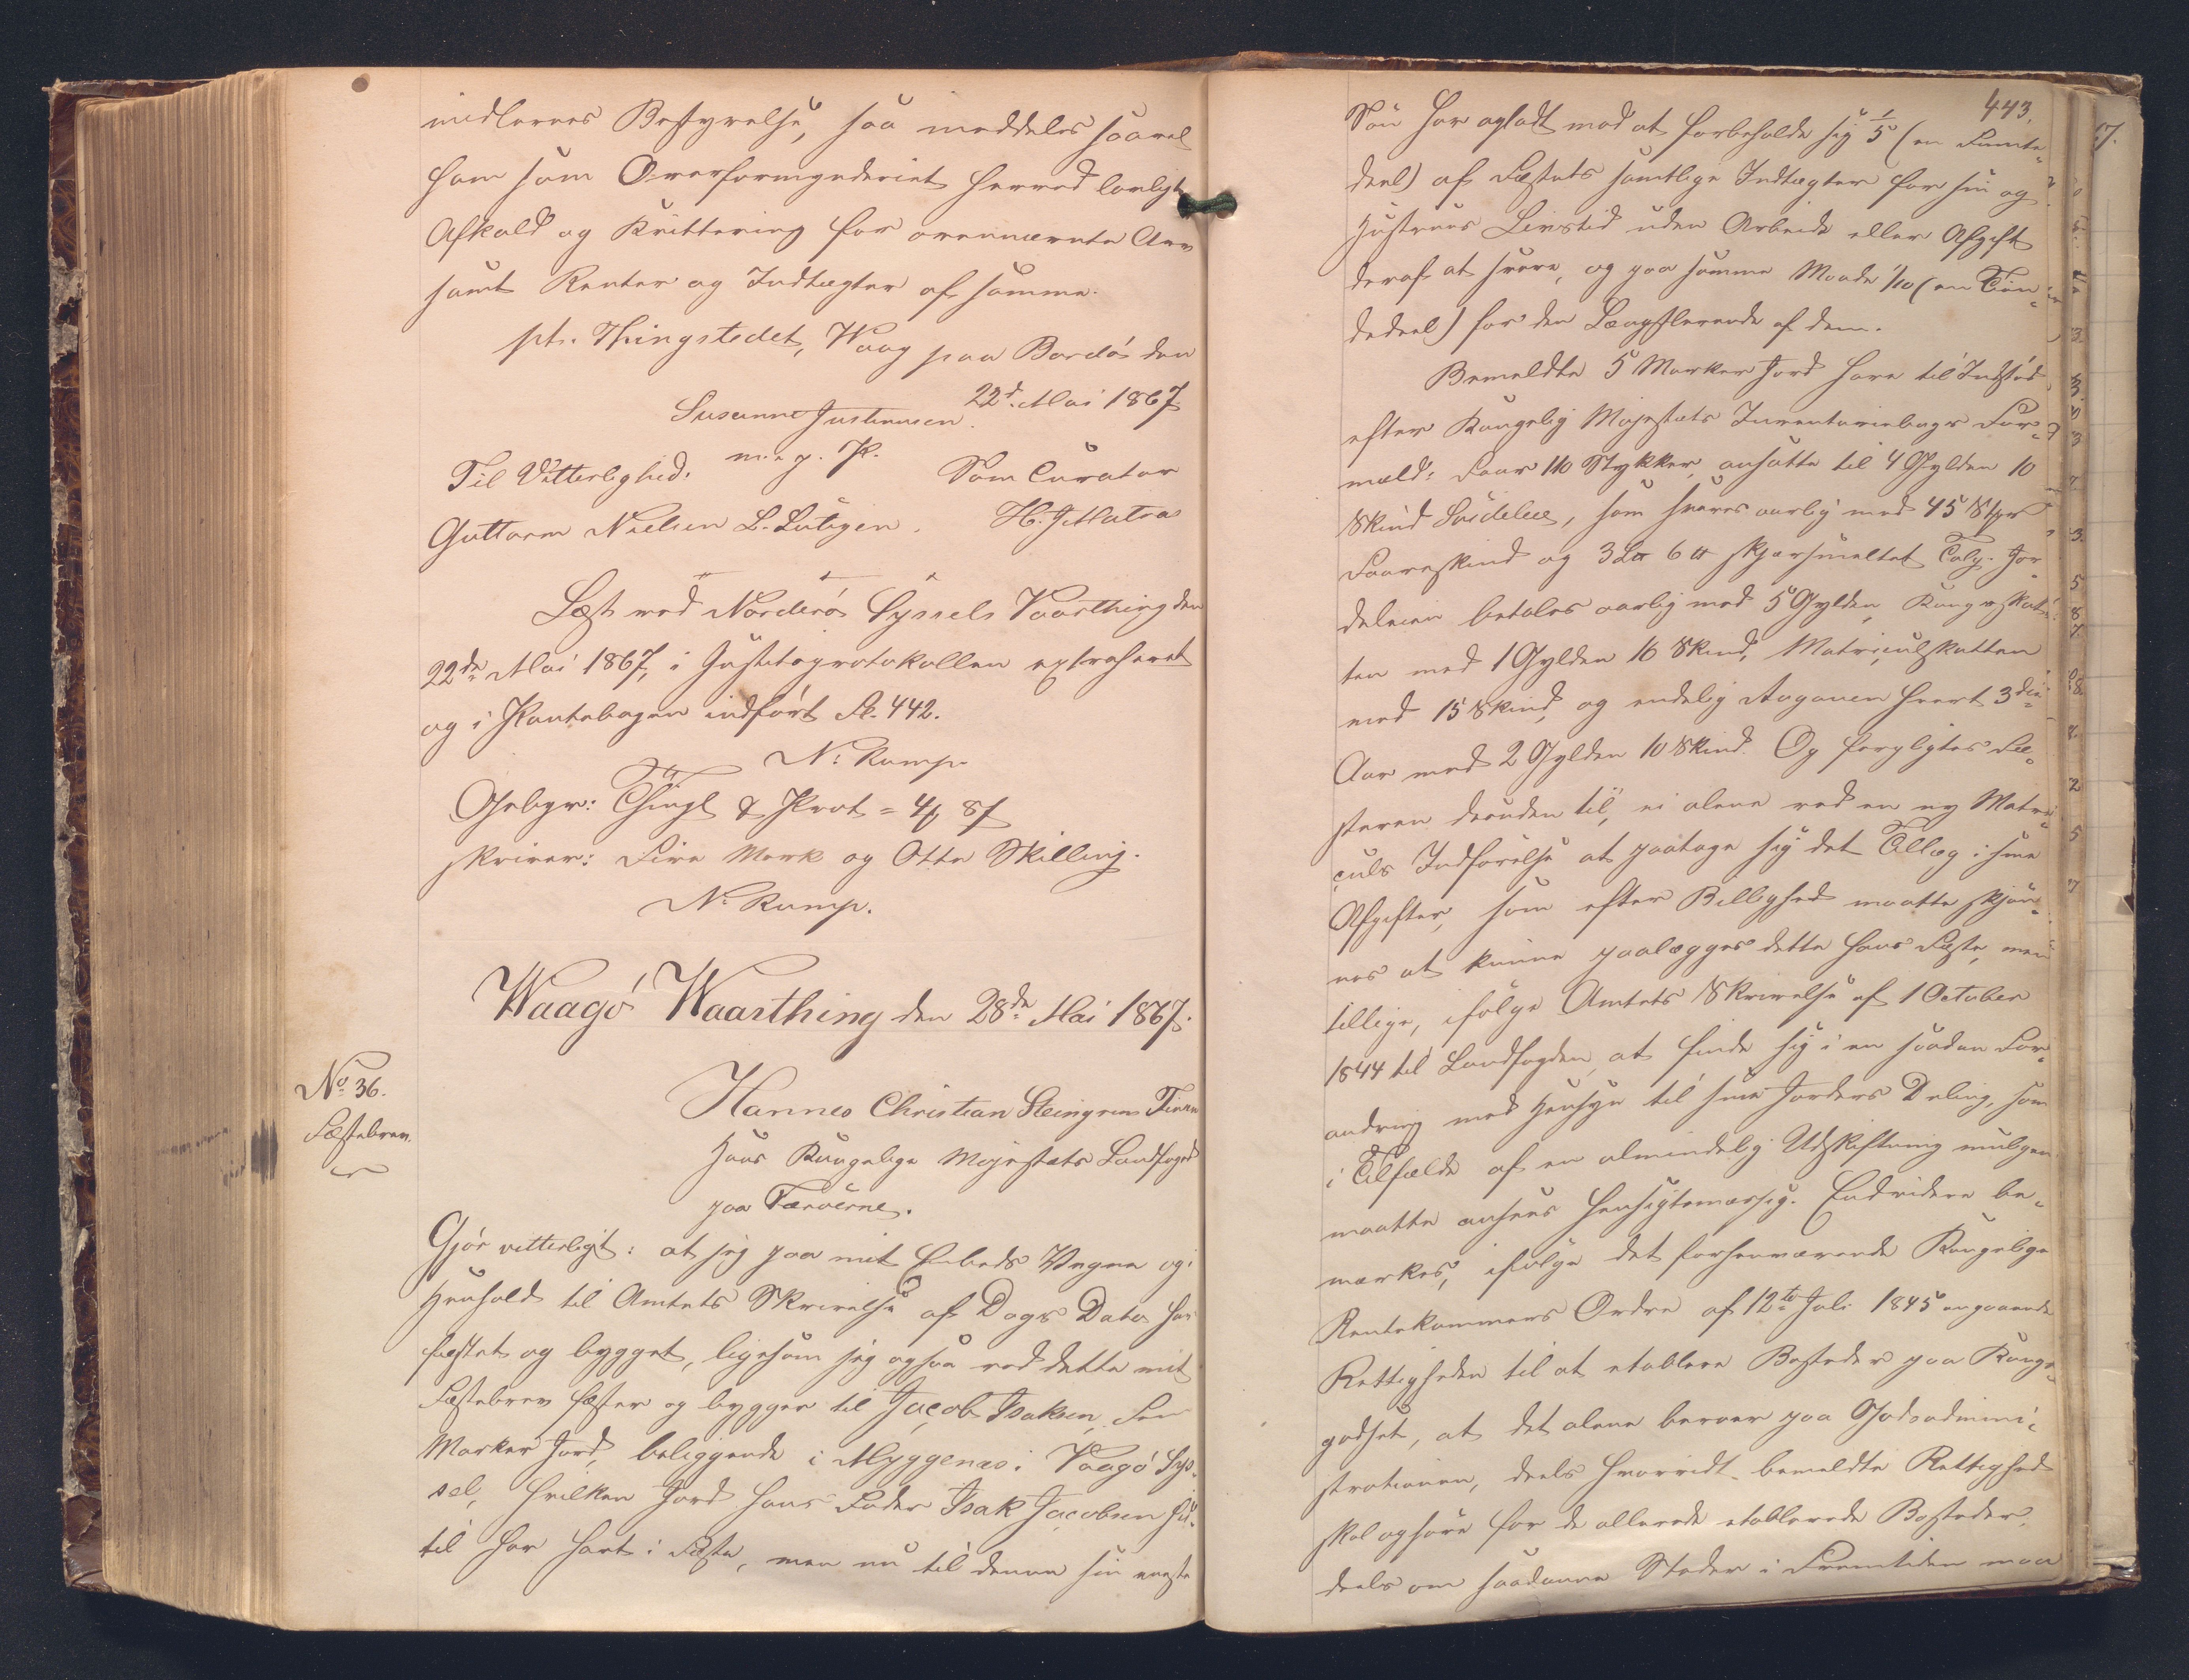 midlernes Bestyrelse, saa meddeles saavel
ham som Overformynderiet herved lovligt
Afkald og Kvittering for ovennævnte Arv
samt Renter og Indtægter af samme.
pt. Thingstedet, Waag paa Bordö den
22d. Mai 1867
Susanne Justinusen.
m. e. p. P.
Til Vitterlighed:
Som Curator
Guttorm Nielsen L. Lützen.
H. J. Matras
Læst ved Norderö Syssels Vaarthing den
22de Mai 1867, i Justitsprotokollen extraheret
og i Pantebogen indført Fol. 442.
N. Rump.
Gebyr: Thingl & Prot = 4 ₰ 8 ſ
skriver: Fire Mark og Otte Skilling.
N. Rump.
Waagö Waarthing den 28de Mai 1867.
No. 36.
Fæstebrev.
Hannes Christian Steingrim Finsen
Hans Kongelige Majestæts Landfoged
paa Færöerne.
Gjör vitterligt: at jeg paa mit Embeds Vegne og i
Henhold til Amtets Skrivelse af Dags Dato har
fæstet og bygget, ligesom jeg ogsaa ved dette mit
Fæstebrev fæster og bygger til Jacob Isaksen, Fem
Marker Jord, beliggende i Myggenæs i Vaagö Sys-
sel, hvilken Jord hans Fader Isak Jacobsen hid-
til har havt i Fæste, men nu til denne sin eneste
443.
Sön har afstaaet mod at forbeholde sig 1/5 (en Femte-
deel) af Fæstets samtlige Indtægter for sin og
Hustrues Livstid uden Arbeide eller Afgift
deraf at svare, og paa samme Maade 1/10 (en Tien-
dedeel) for den Længstlevende af dem.
Bemeldte 5 Marker Jord have til Indstöd
efter Kongelig Majestæts Inventariebogs For-
meld: Faar 110 Stykker, ansatte til 4 Gylden 10
Skind Landskyld, som svares aarlig med 45 Stkr
Faareskind og 3 L℔ 6 ℔ skjærsmeltet Talg. Jor-
deleien betales aarlig med 5 Gylden, Kongeskat-
ten med 1 Gylden 16 Skind, Matriculskatten
med 15 Skind, og endelig Augaven hvert 3die
Aar med 2 Gylden 10 Skind. Og forpligtes Fæ-
steren desuden til, ei alene ved en ny Matri-
culs Indförelse at paatage sig det Tillæg i sine
Afgifter, som efter Billighed maatte skjön-
nes at kunne paalægges dette hans Fæste, men
tillige, ifölge Amtets Skrivelse af 1 October
1844 til Landfogden, at finde sig i en saadan For-
andring med Hensyn til sine Jorders Deling, som
i Tilfælde af en almindelig Udskiftning muligen
maatte ansees hensigtsmæssig. Endvidere be-
mærkes, ifölge det forhenværende Kongelige
Rentekammers Ordre af 12te Juli 1845 angaaende
Rettigheden til at etablere Bosteder paa Konge-
godset, at det alene beroer paa Godsadmini-
strationen, deels hvorvidt bemeldte Rettighed
skal ophöre for de allerede etablerede Bosteder,
deels om saadanne Steder i Fremtiden maa